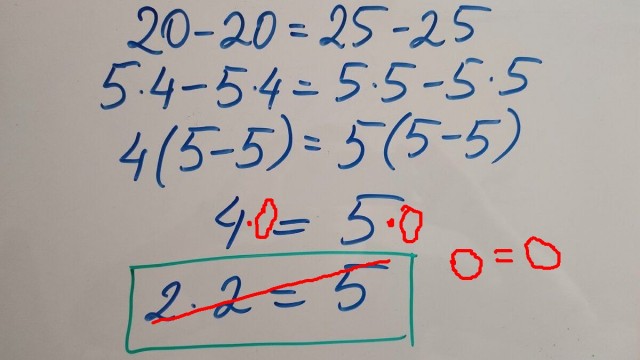 20-20=25-25
5·4-5·4=5·5-5·5
4(5-5)=5(5-5)
4·0=5·0
0=0
2·2=5